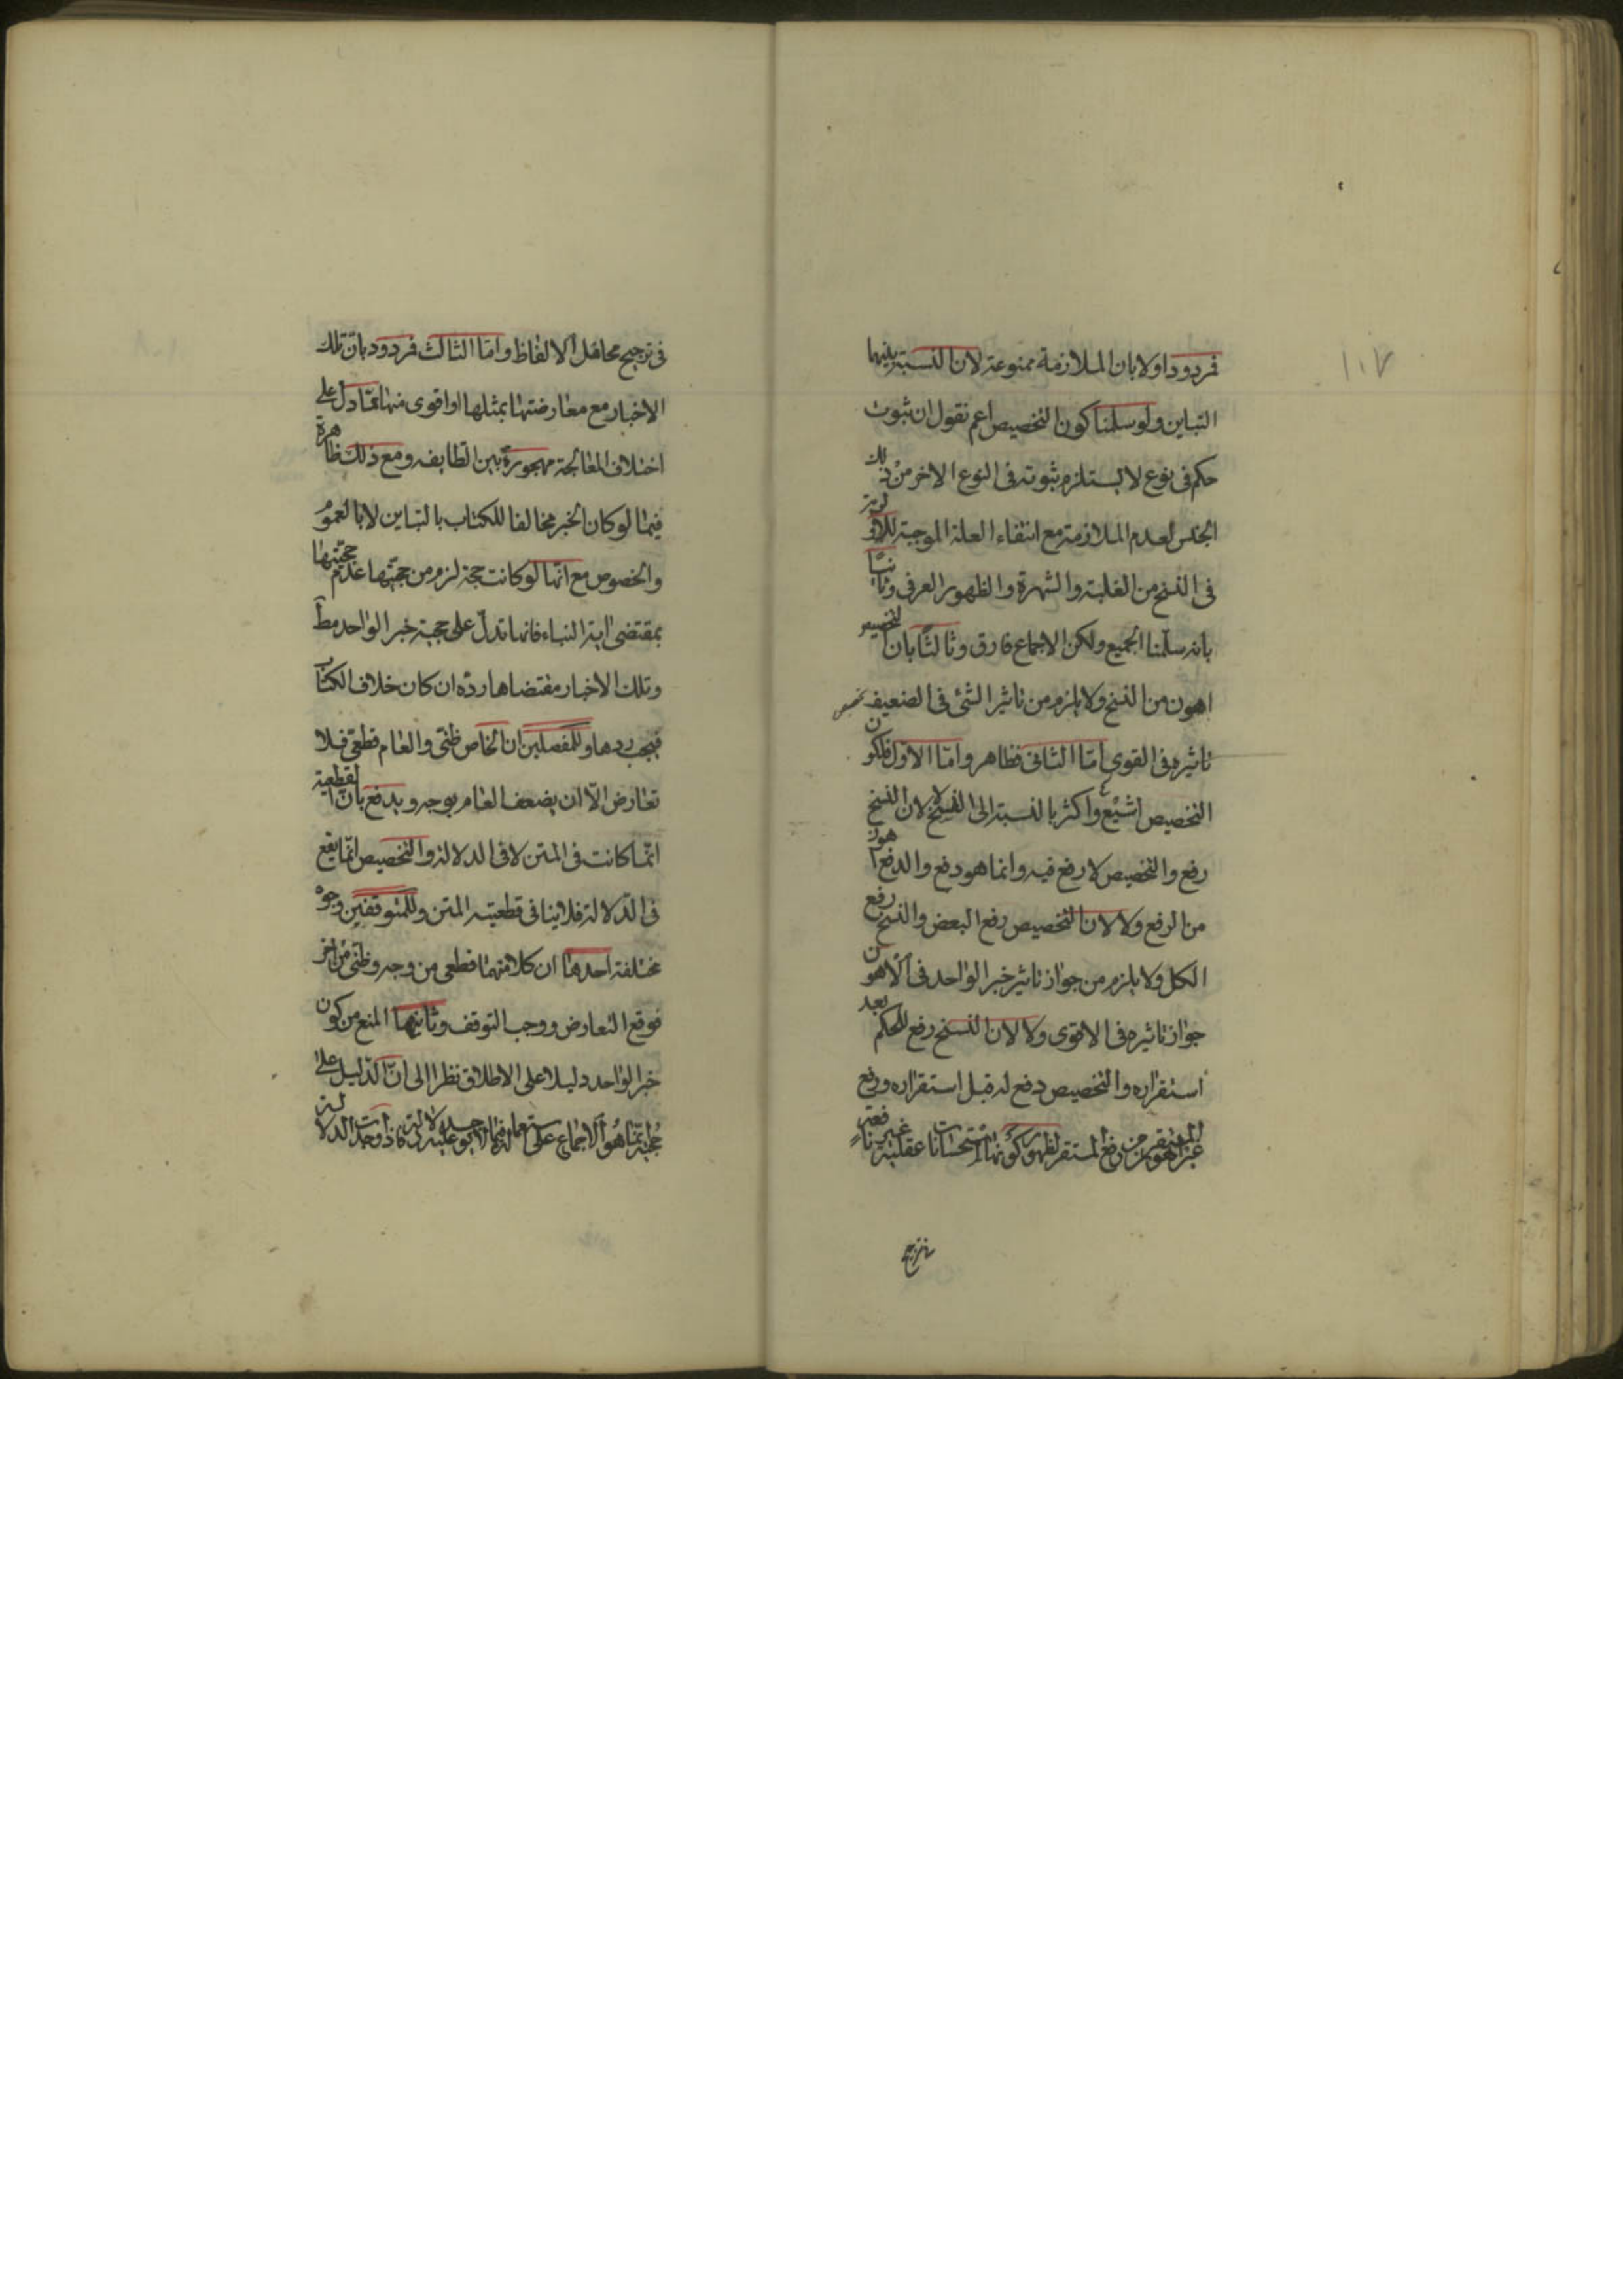 ١٠٧
فمردود اولا بان الملازمة ممنوعة لان النسبة بينهما
التباين ولو سلمنا كون التخصيص اعم نقول ان ثبوت
حكم فى نوع لا يستلزم ثبوته فى النوع الاخر من ذلك
الجنس لعدم الملازمة مع انتفاء العلة الموجبة للاولوية
فى النسخ من الغلبة والشهرة والظهور العرفى وثانيا
بانه سلمنا الجميع ولكن الاجماع فارق وثالثا بان التخصيص
اهون من النسخ ولا يلزم من تاثير الشئ فى الضعيف
تاثيره فى القوى امّا الثانى فظاهر وامّا الاول فلكون
التخصيص اشيع واكثر بالنسبة الى النسخ لا لان النسخ
رفع والتخصيص لا رفع فيه وانما هو دفع والدفع اهون
من الرفع ولا لان التخصيص رفع البعض والنسخ رفع
الكل ولا يلزم من جواز تاثير خبر الواحد فى الاهون
جواز تاثيره فى الاقوى ولا لان النسخ رفع للحكم بعد
استقراره والتخصيص دفع له قبل استقراره ورفع
غير المستقر اهون من رفع المستقر لظهور كونها استحسانات عقلية غير نافعة
فى ترجيح محامل الالفاظ وامّا الثالث فمردود بانّ تلك
الاخبار مع معارضتها بمثلها او اقوى منها ممّا دل على
اختلاف المعالجة مهجورة بين الطايفه ومع ذلك ظاهرة
فيما لو كان الخبر مخالفا للكتاب بالتباين لا بالعموم
والخصوص مع انّها لو كانت حجة لزم من حجيّتها عدم حجيّتها
بمقتضى اية النباء فانها تدلّ على حجية خبر الواحد مط
وتلك الاخبار مقتضاها ردّه ان كان خلاف الكتاب
فيجب ردها وللمفصلين ان الخاص ظنّى والعام قطعىّ فلا
تعارض الّا ان يضعف العام بوجه ويدفع بانّ القطعية
انّما كانت فى المتن لا فى الدلالة والتخصيص انّما يقع
فى الدّلالة فلا ينافى قطعيته المتن وللمتوقفين وجوه
مختلفة احدها ان كلا منهما قطعى من وجه وظنّى من اخر
فوقع التعارض ووجب التوقف وثانيها المنع من كون
خبر الواحد دليلا على الاطلاق نظرا الى انّ الدّليل على
حجيّته انّما هو الاجماع على استعماله فيما لا يوجد عليه دلالة فاذا وجدت الدلالة